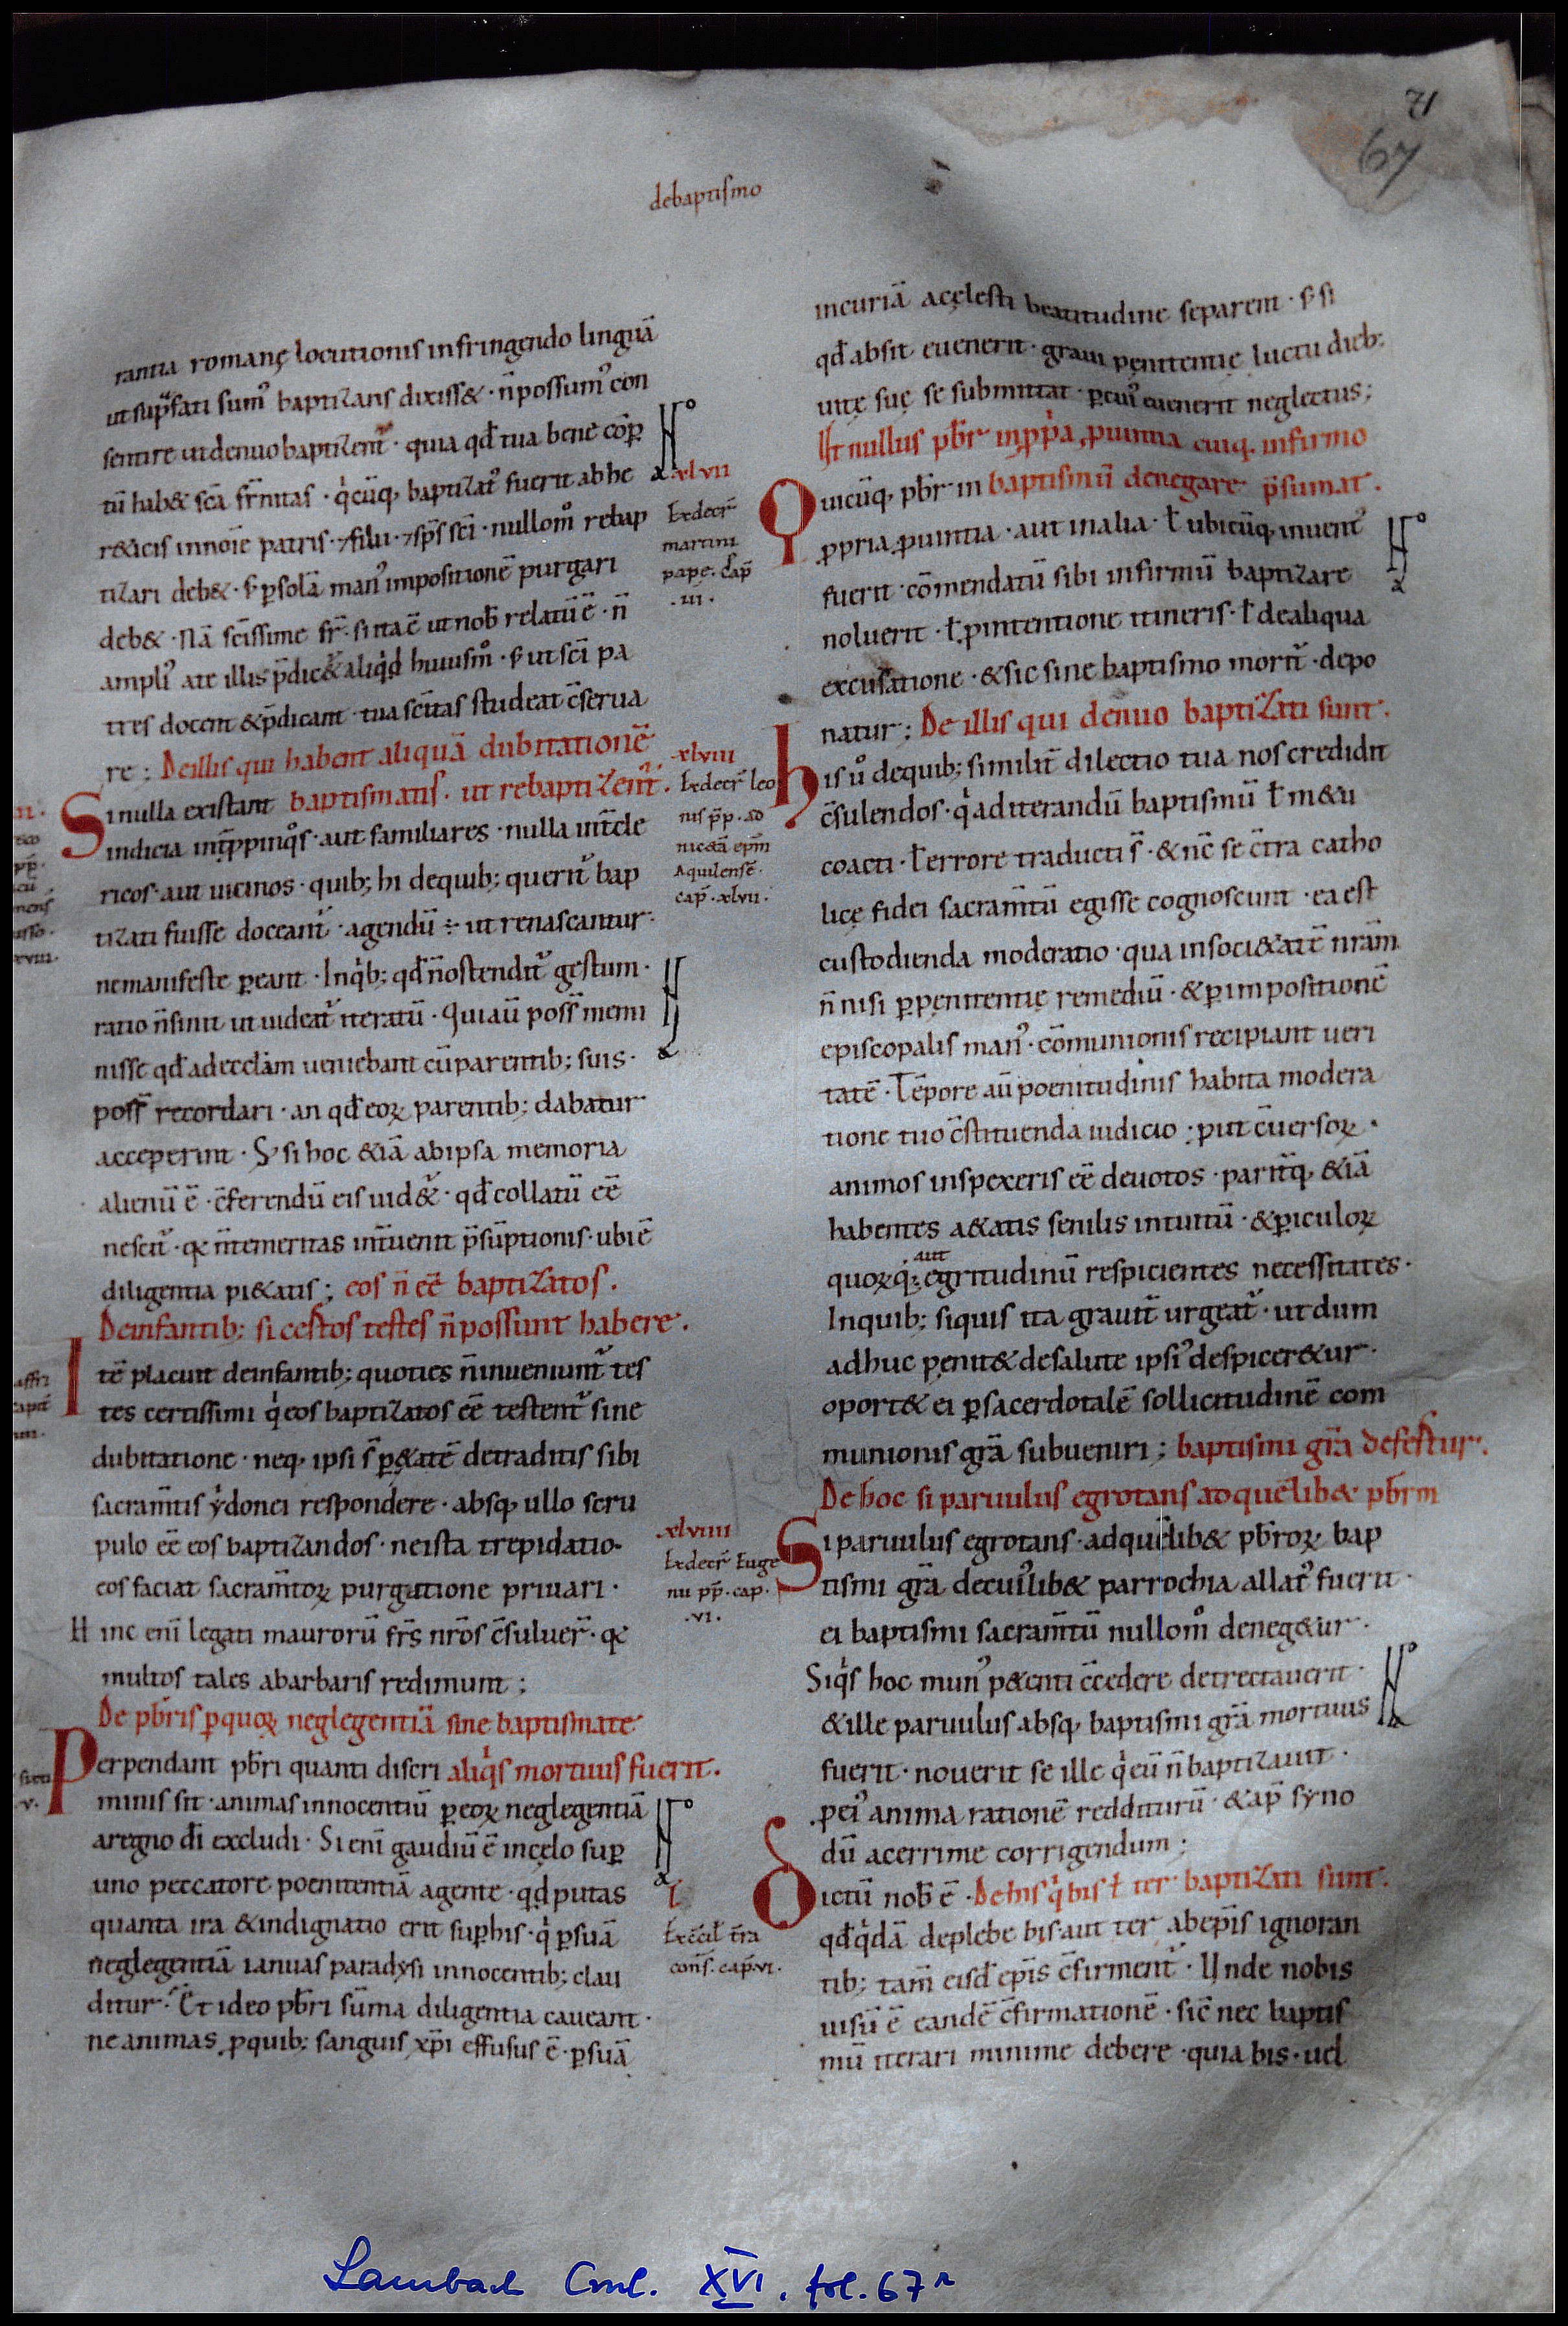 71
67
debaptismo
rantia romanę locutionis infringendo linguā
ut sup̄fati sumꝰ baptizans dixiss& · n̄possumꝰ con
sentire utdenuobaptizent᷑ · quia qđ tua bene cōꝑ
tū hab& sc̄a fr̄nitas · q̇cūq, baptizatꝰ fuerit abhe
r&icis innoīe patris · ⁊filii · ⁊sp̄s sc̄i · nullom̊ rebap
tizari deb& · s; ꝑsolā manꝰ impositionē purgari
deb& · Nā sc̄issime fr̄ · si ita ē ut nob̄ relatū ē · n̄
ampliꝰ ate illis p̄dic&᷑ aliq̇d huiusm̊ · s; ut sc̄i pa
tres docent &p̄dicant · tua sc̄itas studeat c̄serua
re ; Deillis qui habent aliquā dubitationē
Si nulla existant baptismatis · ut rebaptizent᷑ .
indicia int̄ꝓpinq̊s · aut familiares · nulla int̄cle
ricos · aut uicinos · quib; hi dequib; querit᷑ bap
tizati fuisse doceant᷑ · agendū ÷ ut renascantur ·
nemanifeste ꝑeant · Inq̇b; qđ n̄ostendit᷑ gestum ·
ratio n̄sinit ut uideat᷑ iteratū · Quiaū poss̄ memi
nisse qđ adecclām ueniebant cū parentib; suis ·
poss̄ recordari · an qđ eoꝝ parentib; dabatur
acceperint · S; si hoc &iā abipsa memoria
alienū ē · c̄ferendū eis uid&᷑ · qđ collatū eē
nescit᷑ · q̨ n̄temeritas int̄uenit p̄sūptionis · ubi ē
diligentia pi&atis ; eos n̄ eē baptizatos .
Deinfantib; si cestos testes n̄possunt habere .
Itē placuit deinfantib; quoties n̄inueniunt᷑ tes
tes certissimi q̇ eos baptizatos eē testent᷑ sine
dubitatione · neq, ipsi s̄ ꝑ&atē detraditis sibi
sacram̄tis ẏdonei respondere · absq, ullo scru
pulo eē eos baptizandos · neista trepidatio
eos faciat sacram̄toꝝ purgatione priuari ·
Hinc enī legati maurorū fr̄s nr̄os c̄suluer̄ · q̨
multos tales abarbaris redimunt ;
De pb̄ris ꝑquoꝝ neglegentiā sine baptismate
Perpendant pb̄ri quanti discri aliq̇s mortuus fuerit .
minis sit · animas innocentiū ꝑ eoꝝ neglegentiā
aregno dī excludi · Si enī gaudiū ē incęlo suꝑ
uno peccatore poenitentiā agente · qđ putas
quanta ira &indignatio erit suꝑhis · q̇ ꝑsuā
neglegentiā ianuas paradysi innocentib; clau
ditur · Et ideo pb̄ri sūma diligentia caueant ·
ne animas ꝓquib; sanguis xp̄i effusus ē · ꝑsuā
xlvii
Exdecr̄
martini
pape · cap̄
· iii ·
xlviii
Exdecr̄ leo
nis p̄p · ad
nic&ā ep̄m
Aquilensē ·
cap̄ · xlvii ·
xlviiii
Exdecr̄ Euge
nii pp̄ · cap ·
· vi ·
l
Exc̄cil̄ t̄ra
cons̄ · cap̄ · vi ·
incuriā acęlesti beatitudine separent · s; si
qđ absit euenerit · graui pęnitentię luctu dieb;
uitę suę se submittat · ꝑcuiꝰ euenerit neglectus ;
Ut nullus pb̄r inꝓp̄a ꝓuintia cuiq, infirmo
Quicūq, pb̄r in baptismū denegare p̄sumat .
ꝓpria ꝓuintia · aut inalia · ł ubicūq, inuentꝰ
fuerit · cōmendatū sibi infirmū baptizare
noluerit · ł ꝓintentione itineris · ł dealiqua
excusatione · &sic sine baptismo morit᷑ · depo
natur ; De illis qui denuo baptizati sunt .
his ů dequib; similit̄ dilectio tua nos credidit
c̄sulendos · q̇ aditerandū baptismū ł m&u
coacti · ł errore traducti s̄ · &nc̄ se c̄tra catho
licę fidei sacram̄tū egisse cognoscunt · ea est
custodienda moderatio · qua insoci&atē nr̄am
n̄ nisi ꝑpęnitentię remediū · &ꝑ impositionē
episcopalis manꝰ · cōmunionis recipiant ueri
tatē · Tēpore aū poenitudinis habita modera
tione tuo c̄stituenda iudicio · ꝓut c̄uersoꝝ ·
animos inspexeris eē deuotos · parit̄q, &iā
habentes a&atis senilis intuitū · &ꝑiculoꝝ
quoꝝq; aut egritudinū respicientes necessitates ·
Inquib; siquis ita grauit̄ urgeat᷑ · ut dum
adhuc penit& desalute ipsiꝰ despicer&ur ·
oport& ei ꝑsacerdotalē sollicitudinē com
munionis gr̄a subueniri ; baptismi gr̄a defertur .
De hoc si paruulus egrotans ad quēlib& pb̄rm
Si paruulus egrotans · adquēlib& pb̄roꝝ bap
tismi gr̄a decuiꝰlib& parrochia allatꝰ fuerit ·
ei baptismi sacram̄tū nullom̊ deneg&ur ·
Siq̇s hoc munꝰ p&enti c̄cedere detrectauerit ·
&ille paruulus absq, baptismi gr̄a mortuus
fuerit · nouerit se ille q̇ eū n̄ baptizauit ·
ꝓeiꝰ anima rationē redditurū · &ap̄ syno
dū acerrime corrigendum ;
dictū nob̄ ē · Dehis q̇ bis ł ter baptizati sunt .
qđ q̇dā deplebe bis aut ter abep̄is ignoran
tib; tam̄ eisđ ep̄is c̄firment᷑ · Unde nobis
uisū ē eandē c̄firmationē · sic̄ nec baptis
mū iterari minime debere · quia bis · uel
Lambach Cml. XVI, fol. 67r